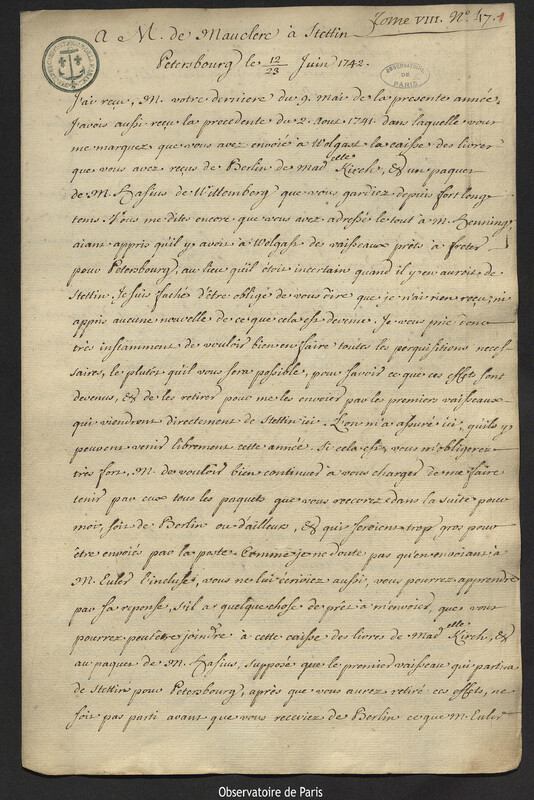 Tome VIII. N.º 47. 1
A M. de Mauclerc à Stettin
Petersbourg le 12/23 Juin 1742.
OBSERVATOIRE DE PARIS
J'ai reçu, M. votre derniere du 9. Mai de la presente année.
J'avois aussi reçu la precedente du 2. Aout 1741. dans laquelle vous
me marquez que vous avez envoié à Wolgast la caisse des livres
que vous avez reçus de Berlin de Mad.elle Kirch, & un paquet
de M. Hasius de Wittemberg que vous gardiez depuis fort long
tems. Vous me dites encore que vous avez adressé le tout à M. Henning,
aiant appris qu'il y avoit à Wolgast de vaisseaux prêts à freter
pour Petersbourg, au lieu qu'il étoit incertain quand il y en auroit de
Stettin. Je suis faché d'être obligé de vous dire que je n'ai rien reçu, ni
appris aucune nouvelle de ce que cela est devenu. Je vous prie donc
très instamment de vouloir bien en faire toutes les perquisitions neces-
saires, le plutôt qu'il vous sera possible, pour savoir ce que ces effets sont
devenus, & de les retirer pour me les envoier par les premiers vaisseaux
qui viendront directement de Stettin ici. L'on m'a assuré ici, qu'ils y
peuvent venir librement cette année. Si cela est, vous m'obligerez
très fort, M. de vouloir bien continuer à vous charger de me faire
tenir par eux tous les paquets que vous recevrez dans la suite pour
moi, soit de Berlin ou d'ailleurs, & qui seroient trop gros pour
être envoiés par la poste. Comme je ne doute pas qu'en envoiant à
M. Euler l'incluse, vous ne lui écriviez aussi, vous pourrez apprendre
par sa reponse, s'il a quelque chose de prêt à m'envoier, que vous
pourrez peut être joindre à cette caisse des livres de Mad.elle Kirch, &
au paquet de M. Hasius, supposé que le premier vaisseau qui partira
de Stettin pour Petersbourg, après que vous aurez retiré ces effets, ne
soit pas parti avant que vous receviez de Berlin ce que M. Euler
Observatoire de Paris